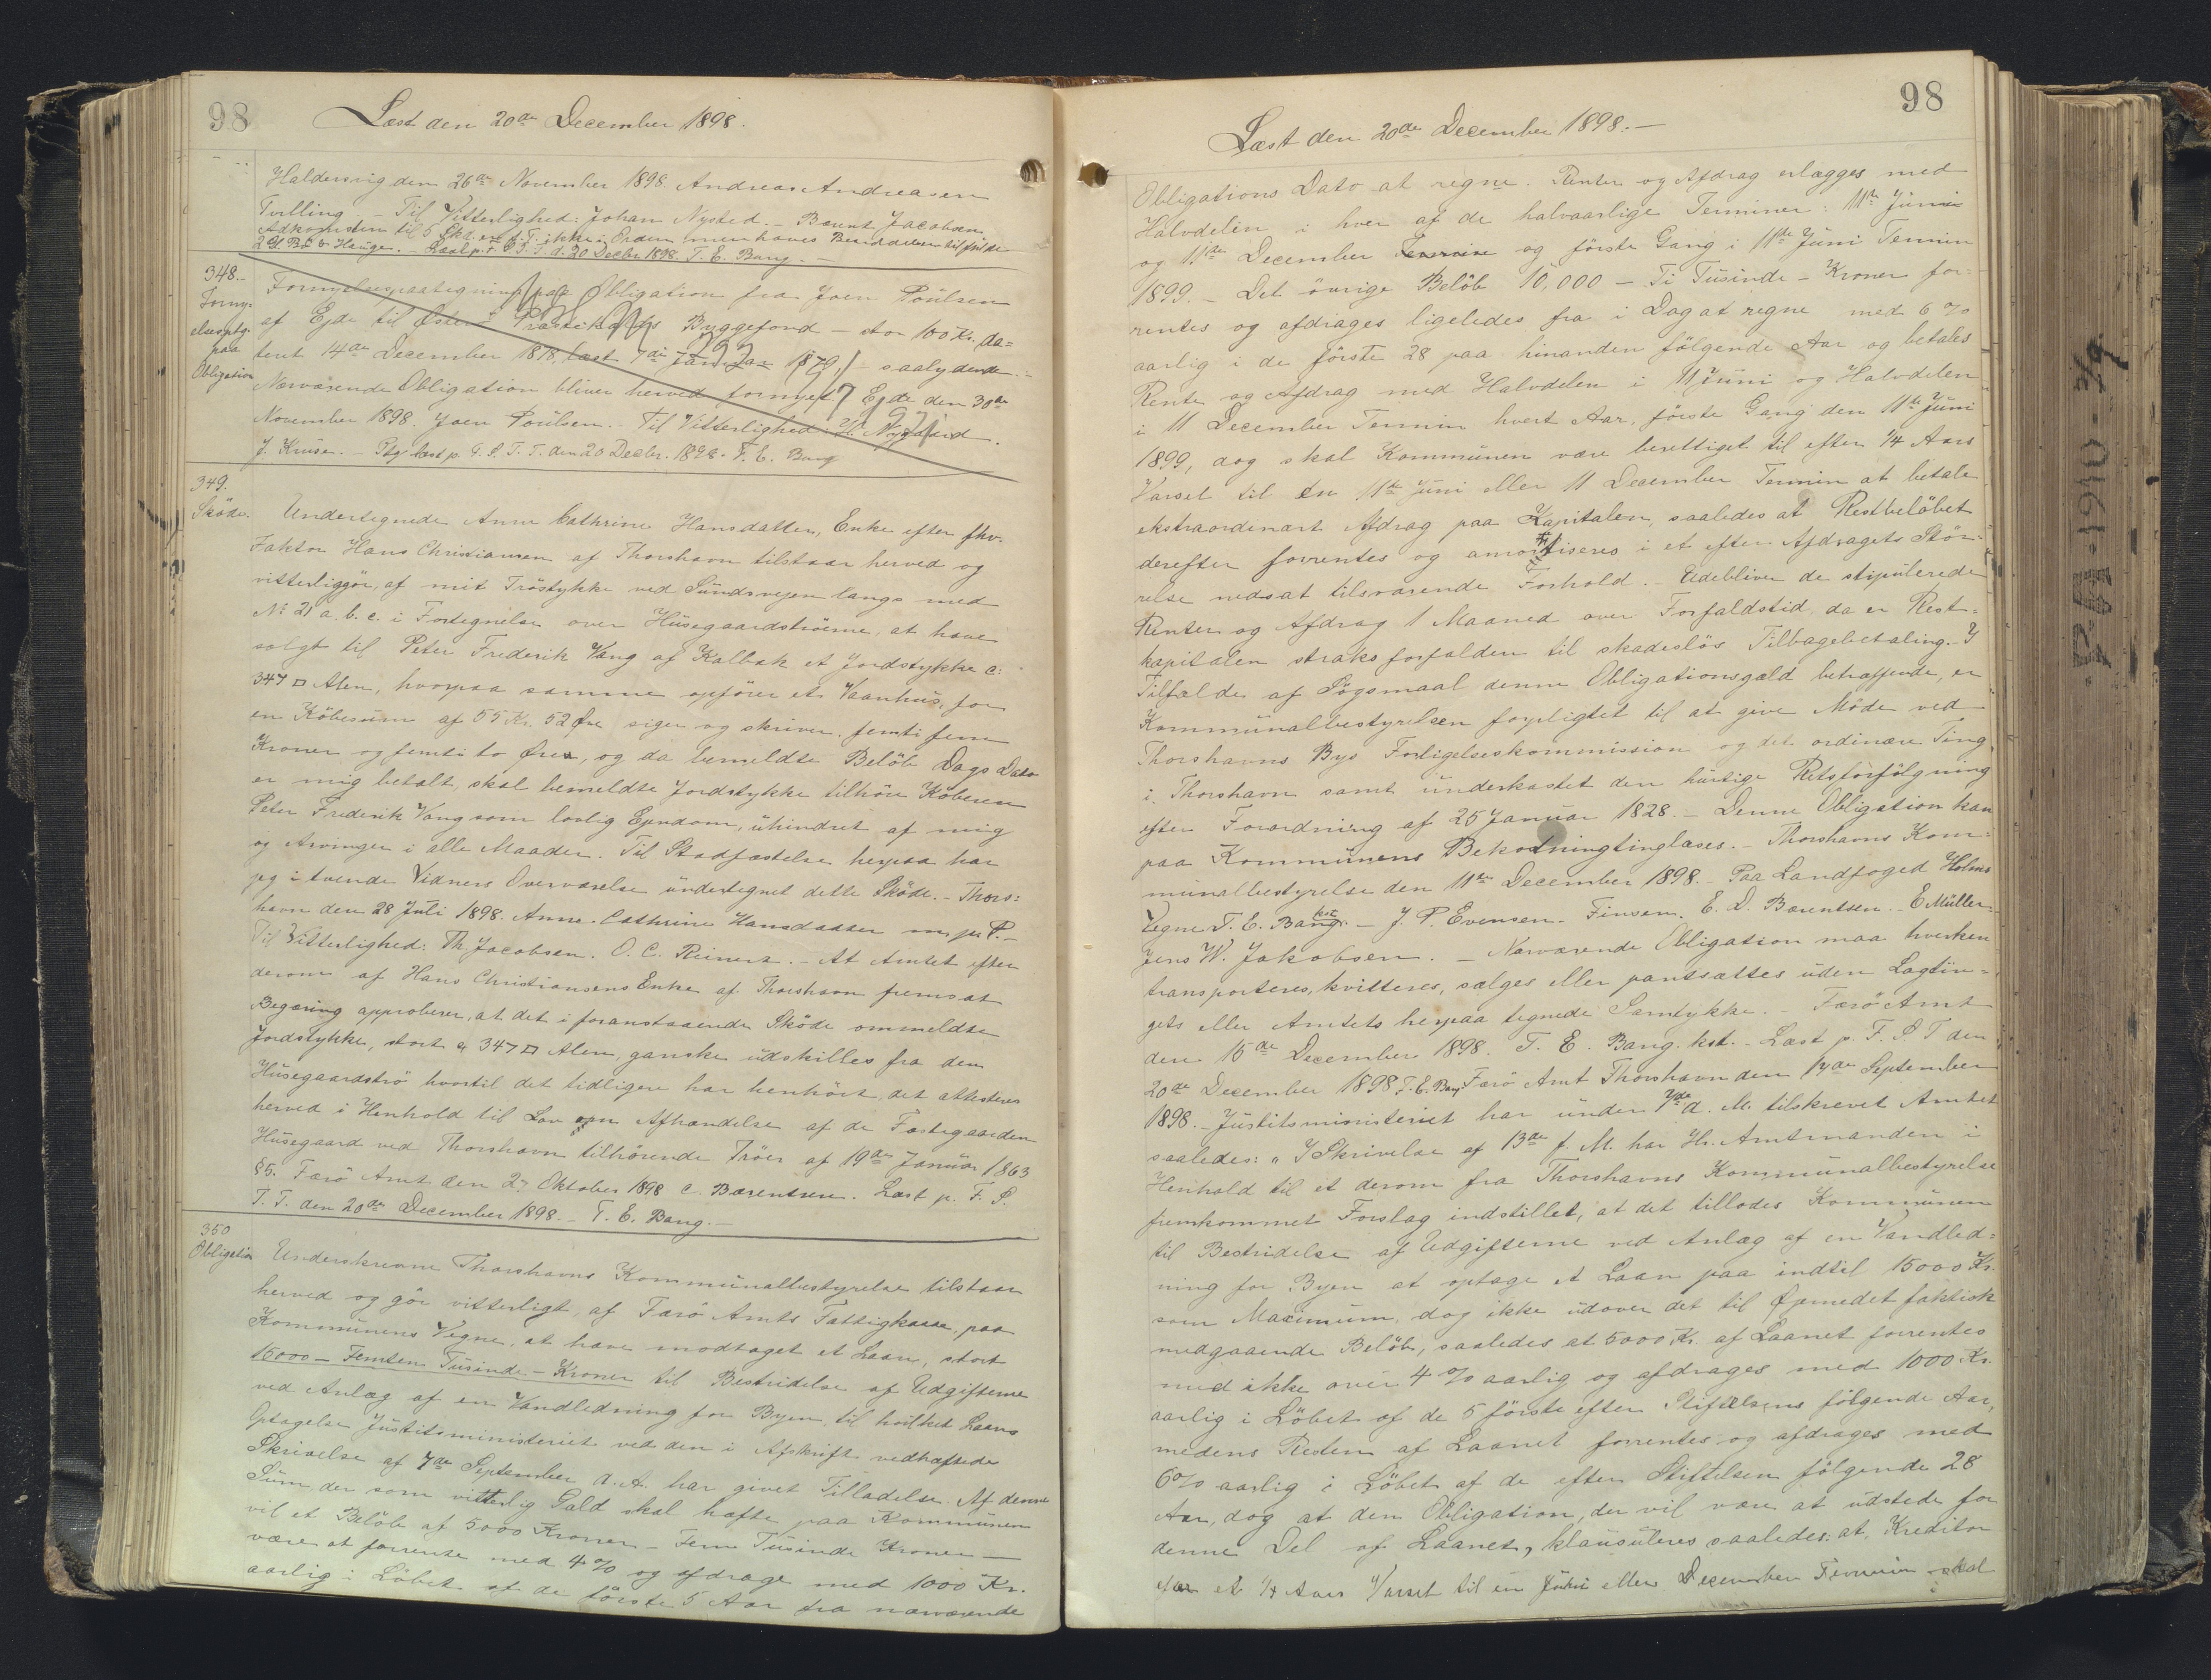 98
Læst den 20de December 1898.
Haldersvig den 26de November 1898. Andreas Andreasen
Tvilling - Til Vitterlighed: Johan Nysted. - Bærent Jacobsen.
Adkomsten til 5 Skd. er f. T. ikke i Orden men haves Beviddelsen tilfulde
Læst p. F. S. T. d. 20 Decbr 1898. T. E. Bang. -
348.-
Forny-
elsesptg.
paa
Obligation
Fornyelsespaategning paa Obligation fra Joen Poulsen
af Ejde til Østerø Præstekalds Byggefond - stor 100 Kr. da=
teret 14de December 1878, læst 7de Januar 1879, - saalydende. -
Nærværende Obligation bliver herved fornyet. Ejde den 30te
November 1898. Joen Poulsen. - Til Vitterlighed: H. Nygaard.
J. Kruse. - Ptg læst p. F. S. T. T. den 20 Decbr. 1898. T. E. Bang
349.
Sköde.
Undertegnede Anne Cathrine Hansdatter, Enke efter fhv.
Faktor Hans Christiansen af Thorshavn tilstaar herved og
vitterliggör, af mit Tröstykke ved Sundsvejen langs med
No 21 a. b. c. i Fortegnelse over Husegaardströerne, at have
solgt til Peter Frederik Vang af Kalbak et Jordstykke c:
347 □ Alen, hvorpaa samme opfører et Vaanhus, for
en Köbesum af 55 Kr. 52 Øre siger og skriver femti fem
Kroner og femti to Øre, og da bemeldte Belöb Dags Dato
er mig betalt, skal bemeldte Jordstykke tilhöre Köberen
Peter Frederik Vang som lovlig Ejendom, uhindret af mig
og Arvinger i alle Maader. Til Stadfæstelse herpaa har
jeg i tvende Vidners Overværelse undertegnet dette Sköde. - Thors:
havn den 28 Juli 1898. Anne Cathrine Hansdatter m. p. P. -
Til Vitterlighed: Th. Jacobsen. O. C. Reinert. - At Amtet efter
derom af Hans Christiansens Enke af Thorshavn fremsat
Begæring approberer, at det i foranstaaende Sköde ommeldte
Jordstykke, stort c 347 □ Alen, ganske udskilles fra den
Husegaardströ hvortil det tidligere har henhört, det attesteres
herved i Henhold til Lov om Afhændelse af de Fæstegaarden
Husegaard ved Thorshavn tilhörende Tröer af 19de Januar 1863
§5. Færö Amt den 27 Oktober 1898 C. Bærentsen. Læst p. F. S.
T. T. den 20de December 1898. - T. E. Bang. -
350
Obligation
Underskrevne Thorshavns Kommunalbestyrelse tilstaar
herved og gör vitterligt, af Færö Amts Fattigkasse, paa
Kommunens Vegne, at have modtaget et Laan, stort
15000 - Femten Tusinde - Kroner til Bestridelse af Udgifterne
ved Anlæg af en Vandledning for Byen, til hvilket Laans
Optagelse Justitsministeriet ved den i Afskrift vedhæftede
Skrivelse af 7de September d. A. har givet Tilladelse. Af denne
Sum, der som vitterlig Gæld skal hæfte paa Kommunen
vil et Belöb af 5000 Kroner - Fem Tusinde Kroner -
være at forrente med 4% og afdrage med 1000 Kr.
aarlig i Löbet af de förste 5 Aar fra nærværende
98
Læst den 20de December 1898. -
Obligations Dato at regne. Renter og Afdrag erlægges med
Halvdelen i hver af de halvaarlige Terminer: 11te Juni
og 11te December Termin og förste Gang i 11te Juni Termin
1899. - Det övrige Belöb 10,000 - Ti Tusinde - Kroner for-
rentes og afdrages ligeledes fra i Dag at regne med 6%
aarlig i de förste 28 paa hinanden fölgende Aar og betales
Rente og Afdrag med Halvdelen i 11 Juni og Halvdelen
i 11 December Termin hvert Aar, förste Gang den 11te Juni
1899, dog skal Kommunen være berettiget til efter 1/4 Aars
Varsel til en 11te Juni eller 11 December Termin at betale
ekstraordenært Afdrag paa Kapitalen, saaledes at Restbelöbet
derefter forrentes og amortiseres i et efter Afdragets Stör=
relse nedsat tilsvarende Forhold. - Udebliver de stipulerede
Renter og Afdrag 1 Maaned over Forfaldstid, da er Rest=
kapitalen straks forfalden til skadeslös Tilbagebetaling. I
Tilfælde af Sögsmaal denne Obligationsgæld betræffende, er
Kommunalbestyrelsen forpligtet til at give Möde ved
Thorshavns Bys Forligelseskommission og det ordinære Ting
i Thorshavn samt underkastet den hurtige Retsforfölgning
efter Forordning af 25 Januar 1828. - Denne Obligation kan
paa Kommunens Bekostning tinglæses. - Thorshavns Kom=
munalbestyrelse den 11te December 1898. - Paa Landfoged Holms
Vegne T. E. Bang. kst - J. P. Evensen. Finsen. E. D. Bærentsen. - E Müller.
Jens W. Jakobsen. - Nærværende Obligation maa hverken
transporteres, kvitteres, sælges eller pantsættes uden Lagtin=
gets eller Amtets herpaa tegnede Samtykke. - Færö Amt
den 15de December 1898. T. E. Bang. kst. - Læst p. F. S. T den
20de December 1898 T. E. Bang. Færö Amt Thorshavn den 17de September
1898. - Justitsministeriet har under 7de d. M. tilskrevet Amtet
saaledes: „ I Skrivelse af 13de f. M. har Hr. Amtmanden i
Henhold til et derom fra Thorshavns Kommunalbestyrelse
fremkommet Forslag indstillet, at det tillodes Kommunen
til Bestridelse af Udgifterne ved Anlæg af en Vandled=
ning for Byen at optage et Laan paa indtil 15000 Kr.
som Maximum, dog ikke udover det til Øjemedet faktisk
medgaaende Belöb, saaledes at 5000 Kr. af Laanet forrentes
med ikke over 4% aarlig og afdrages med 1000 Kr.
aarlig i Löbet af de 5 förste efter Stiftelsens fölgende Aar,
medens Resten af Laanet forrentes og afdrages med
6% aarlig i Löbet af de efter Stiftelsen fölgende 28
Aar, dog at den Obligation, der vil være at udstede for
denne Del af Laanet, klausuleres saaledes: at, Kreditor
efter et 1/4 Aars Varsel til en Juni eller December Termin skal